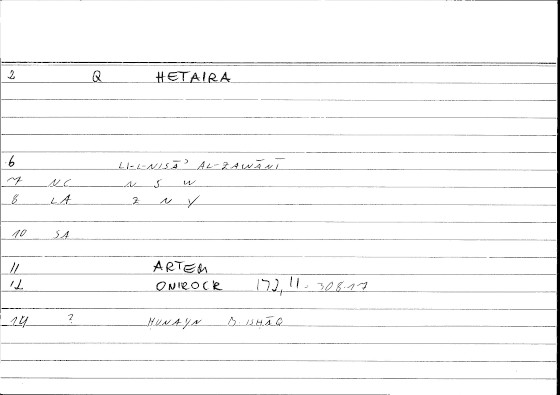 2 Q HETAIRA
6 LI-L-NISĀʾ AL-ZAWĀNĪ
7 NC N S W
8 LA Z N Y
10 SA
11 ARTEM
12 ONIROCR 172, 11 - 308.17
14 ? HUNAYN B. ISHĀQ